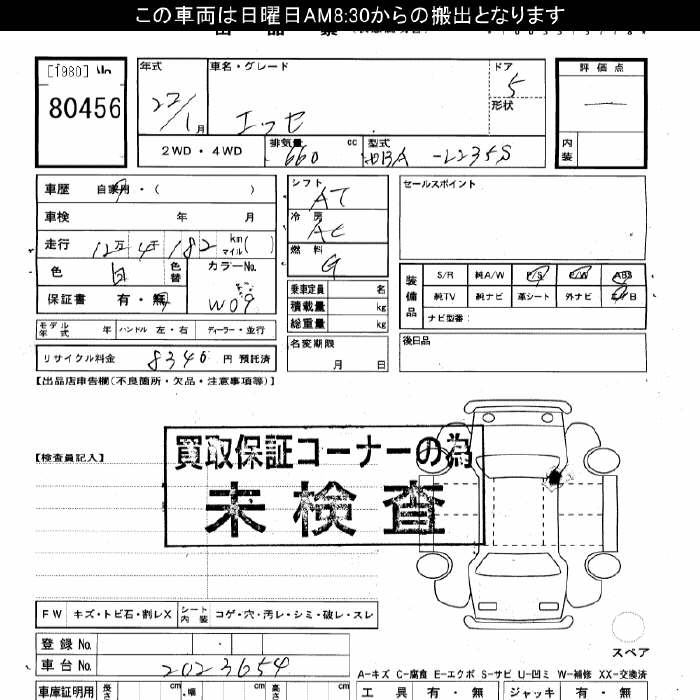 この車両は日曜日AM8:30からの搬出となります
[f980]
80456
年式
22/1月
車名・グレード
エッセ
ドア
5
形状
評価点
内装
2WD・4WD
排気量 660 cc
型式 DBA-L235S
車歴 自家用・( )
車検 年 月
走行 12万4千182 km マイル( )
色 白 色替
カラーNo. W09
保証書 有・無
モデル年式 年 ハンドル 左・右 ディーラー・並行
リサイクル料金 8340 円 預託済
シフト AT
冷房 AC
燃料 G
乗車定員 名
積載量 kg
総重量 kg
名変期限
月 日
セールスポイント
装備品
S/R 純A/W P/S P/W ABS
純TV 純ナビ 革シート 外ナビ エアB
ナビ型番:
後日品
【出品店申告欄(不良箇所・欠品・注意事項等)】
【検査員記入】
買取保証コーナーの為
未検査
FW キズ・トビ石・割レX シート内装 コゲ・穴・汚レ・シミ・破レ・スレ
スペア
登録No.
車台No. 2023654
A-キズ C-腐食 E-エクボ S-サビ U-凹ミ W-補修 XX-交換済
車庫証明用 長さ cm 幅 cm 高さ cm
工具 有・無 ジャッキ 有・無